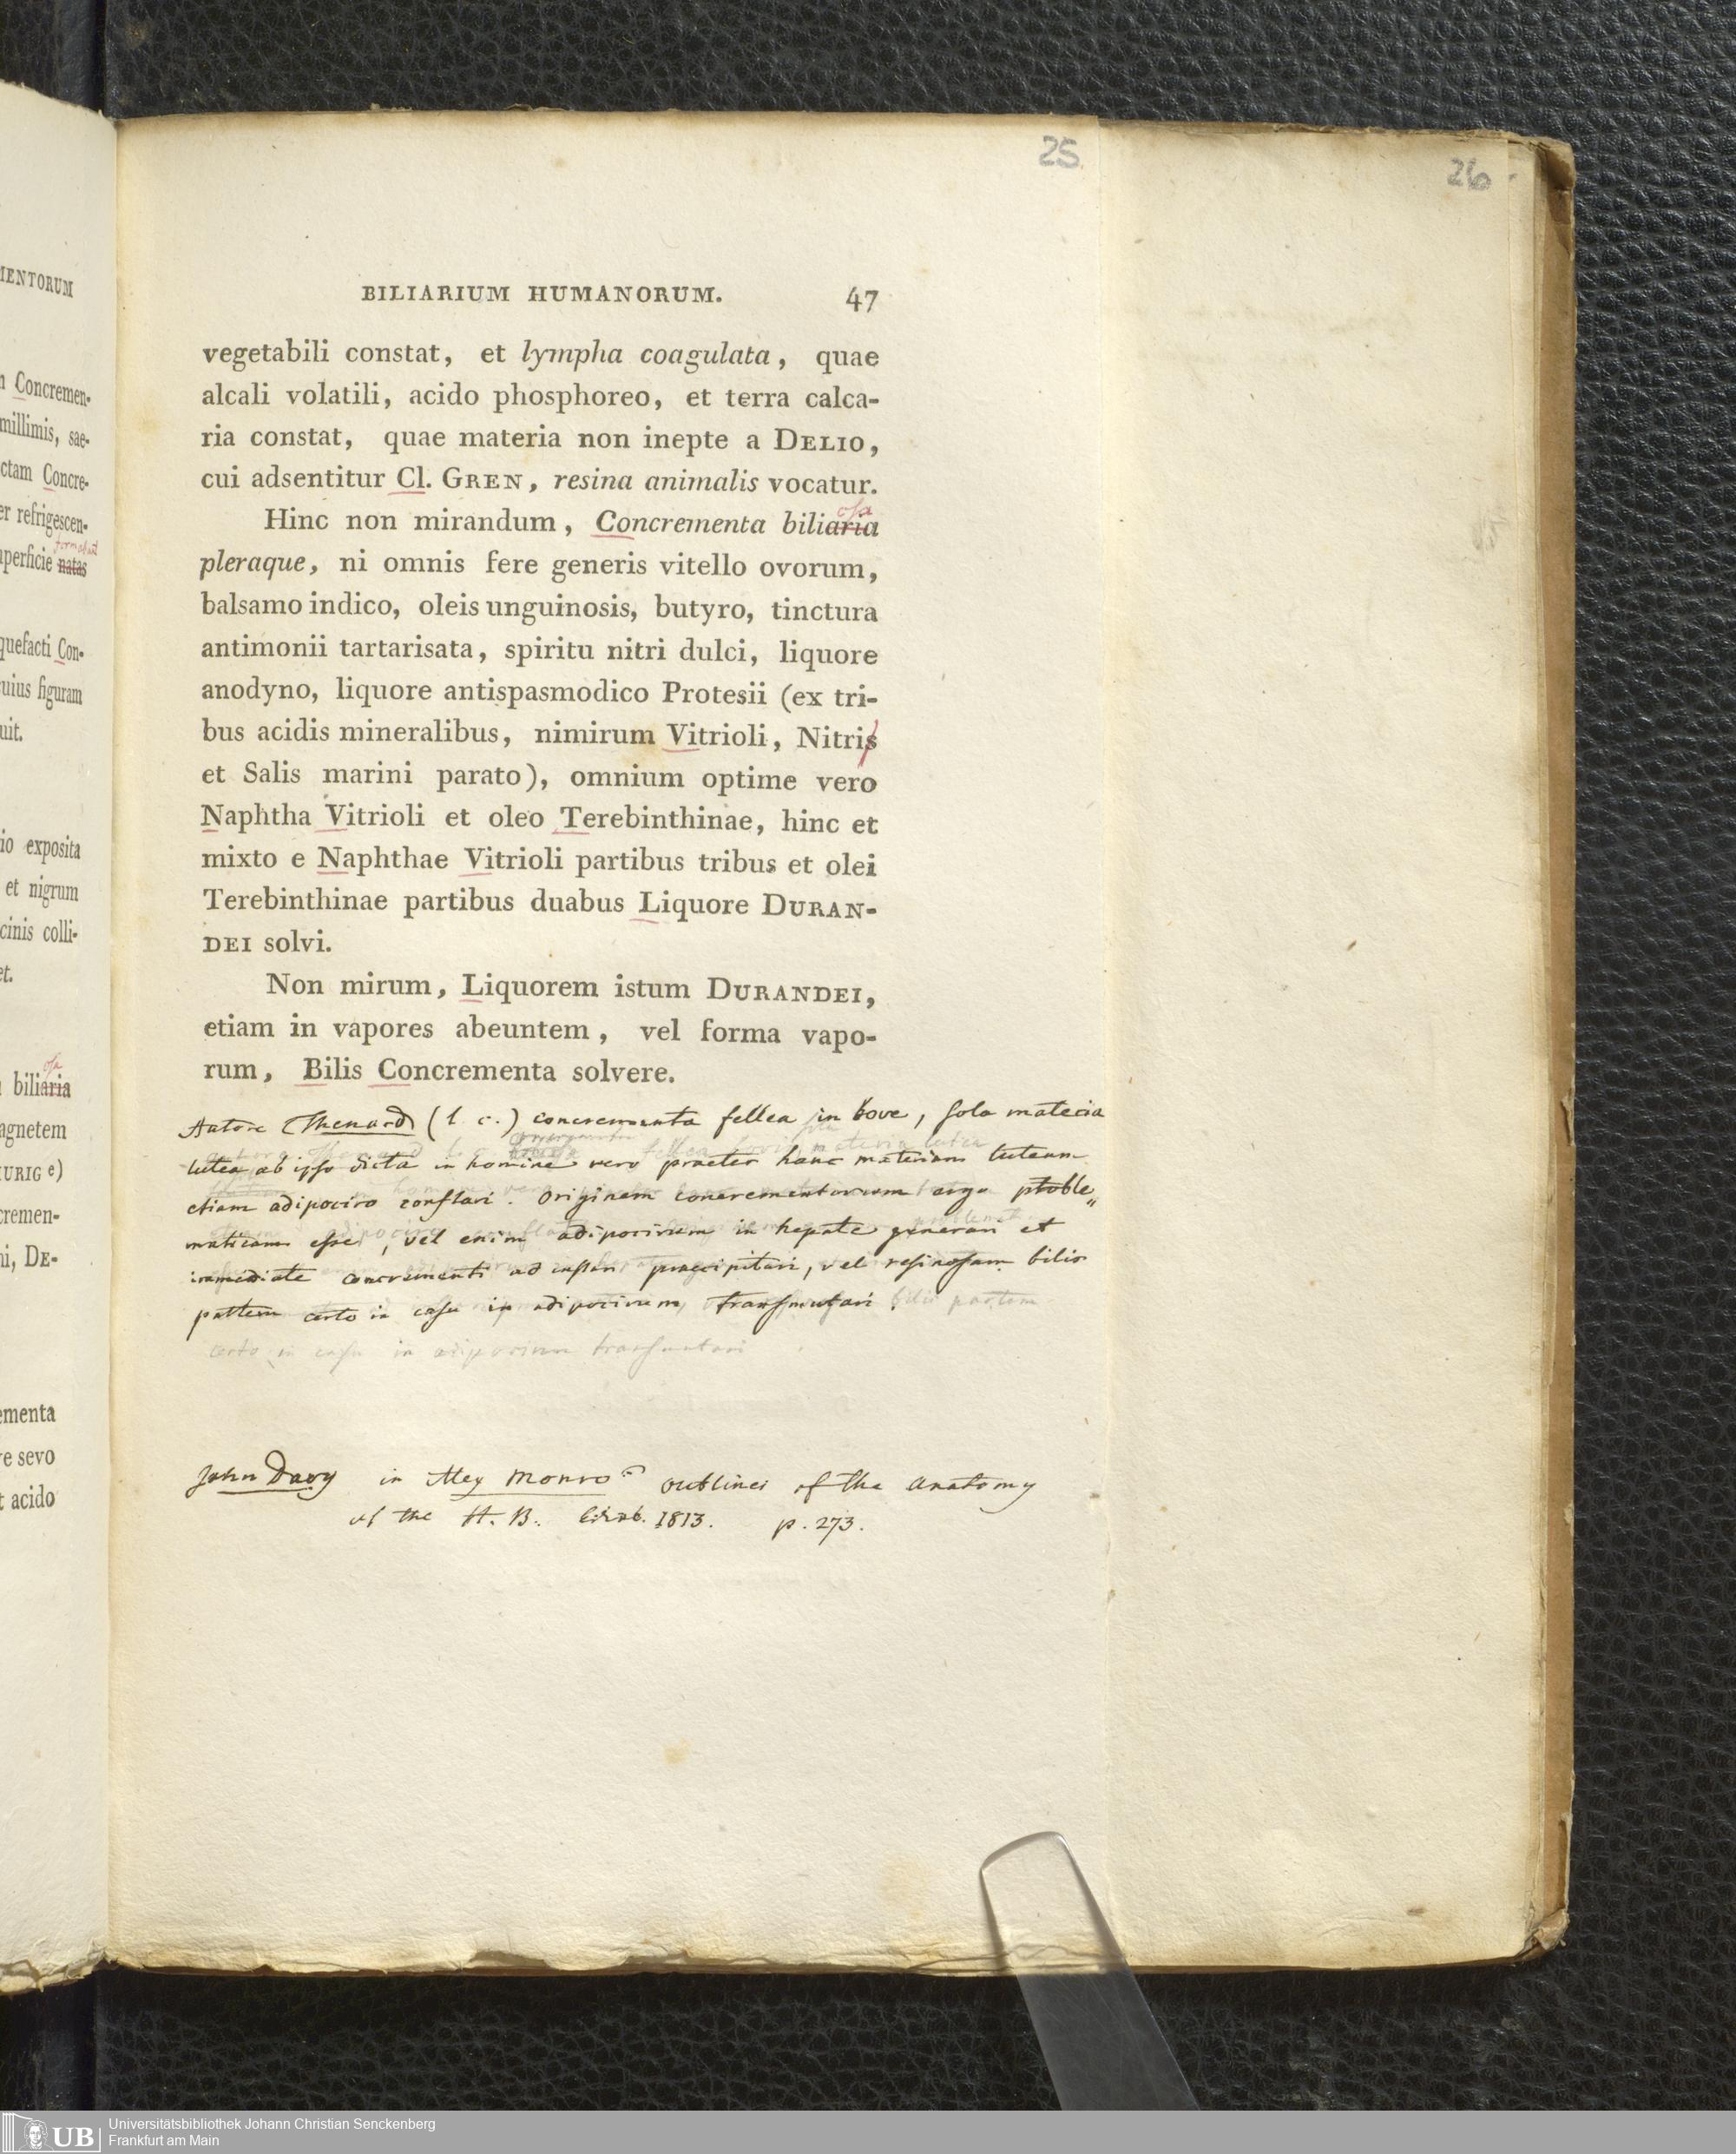 MENTORUM
Concremen-
millimis, sae-
ctam Concre-
er refrigescen-
formabat
perficie natas
quefacti Con-
uius figuram
uit.
io exposita
et nigrum
cinis colli-
et.
osa
biliaria
agnetem
URIG e)
cremen-
ni, DE-
ementa
ve sevo
t acido
25
26
BILIARIUM HUMANORUM. 47
vegetabili constat, et lympha coagulata, quae
alcali volatili, acido phosphoreo, et terra calca-
ria constat, quae materia non inepte a DELIO,
cui adsentitur Cl. GREN, resina animalis vocatur.
osa
Hinc non mirandum, Concrementa biliaria
pleraque, ni omnis fere generis vitello ovorum,
balsamo indico, oleis unguinosis, butyro, tinctura
antimonii tartarisata, spiritu nitri dulci, liquore
anodyno, liquore antispasmodico Protesii (ex tri-
bus acidis mineralibus, nimirum Vitrioli, Nitris
et Salis marini parato), omnium optime vero
Naphtha Vitrioli et oleo Terebinthinae, hinc et
mixto e Naphthae Vitrioli partibus tribus et olei
Terebinthinae partibus duabus Liquore DURAN-
DEI solvi.
Non mirum, Liquorem istum DURANDEI,
etiam in vapores abeuntem, vel forma vapo-
rum, Bilis Concrementa solvere.
Autore Thenard (l. c.) concrementa fellea in bove, sola materia
lutea ab ipso dicta in homine vero praeter hanc materiam luteam
etiam adipociro conflari. Originem concrementorum ergo proble„
maticam esse, vel enim adipocirum in hepate generari et
immediate concrementi ad instar praecipitari, vel resinosam bilis
partem certo in casu in adipocirum transmutari
bilis partem
certo in casu in adipocirum transmutari
John Davy in Alex Monro outlines of the Anatomy
of the H. B. Edinb. 1813. p. 273.
UB
Universitätsbibliothek Johann Christian Senckenberg
Frankfurt am Main